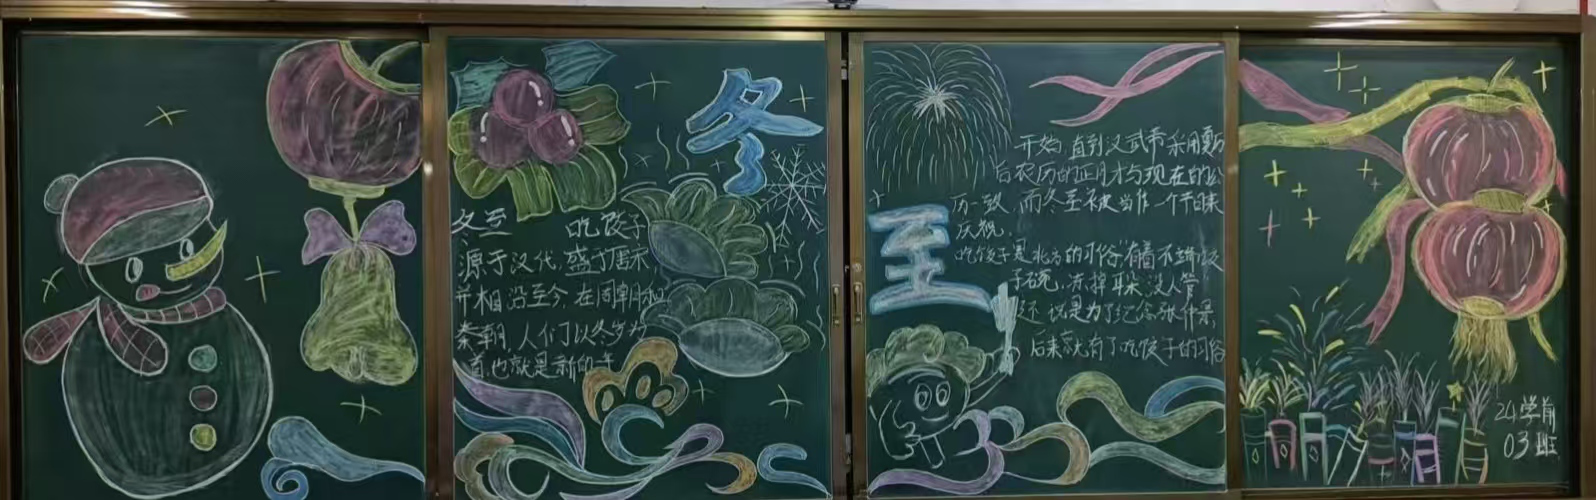 冬
冬至 吃饺子
源于汉代,盛于唐宋,
并相沿至今,在周朝和
秦朝,人们可以冬岁为
首也就是新的一年
至
开始 直到汉武帝采用夏历
后农历的正月才与现在的公
历一致 而冬至被当作一个节日来
庆祝.
吃饺子是北方的习俗"有着不端饺
子碗,冻掉耳朵没人管
还 说是为了纪念张仲景
后来就有了吃饺子的习俗
24学前
03班